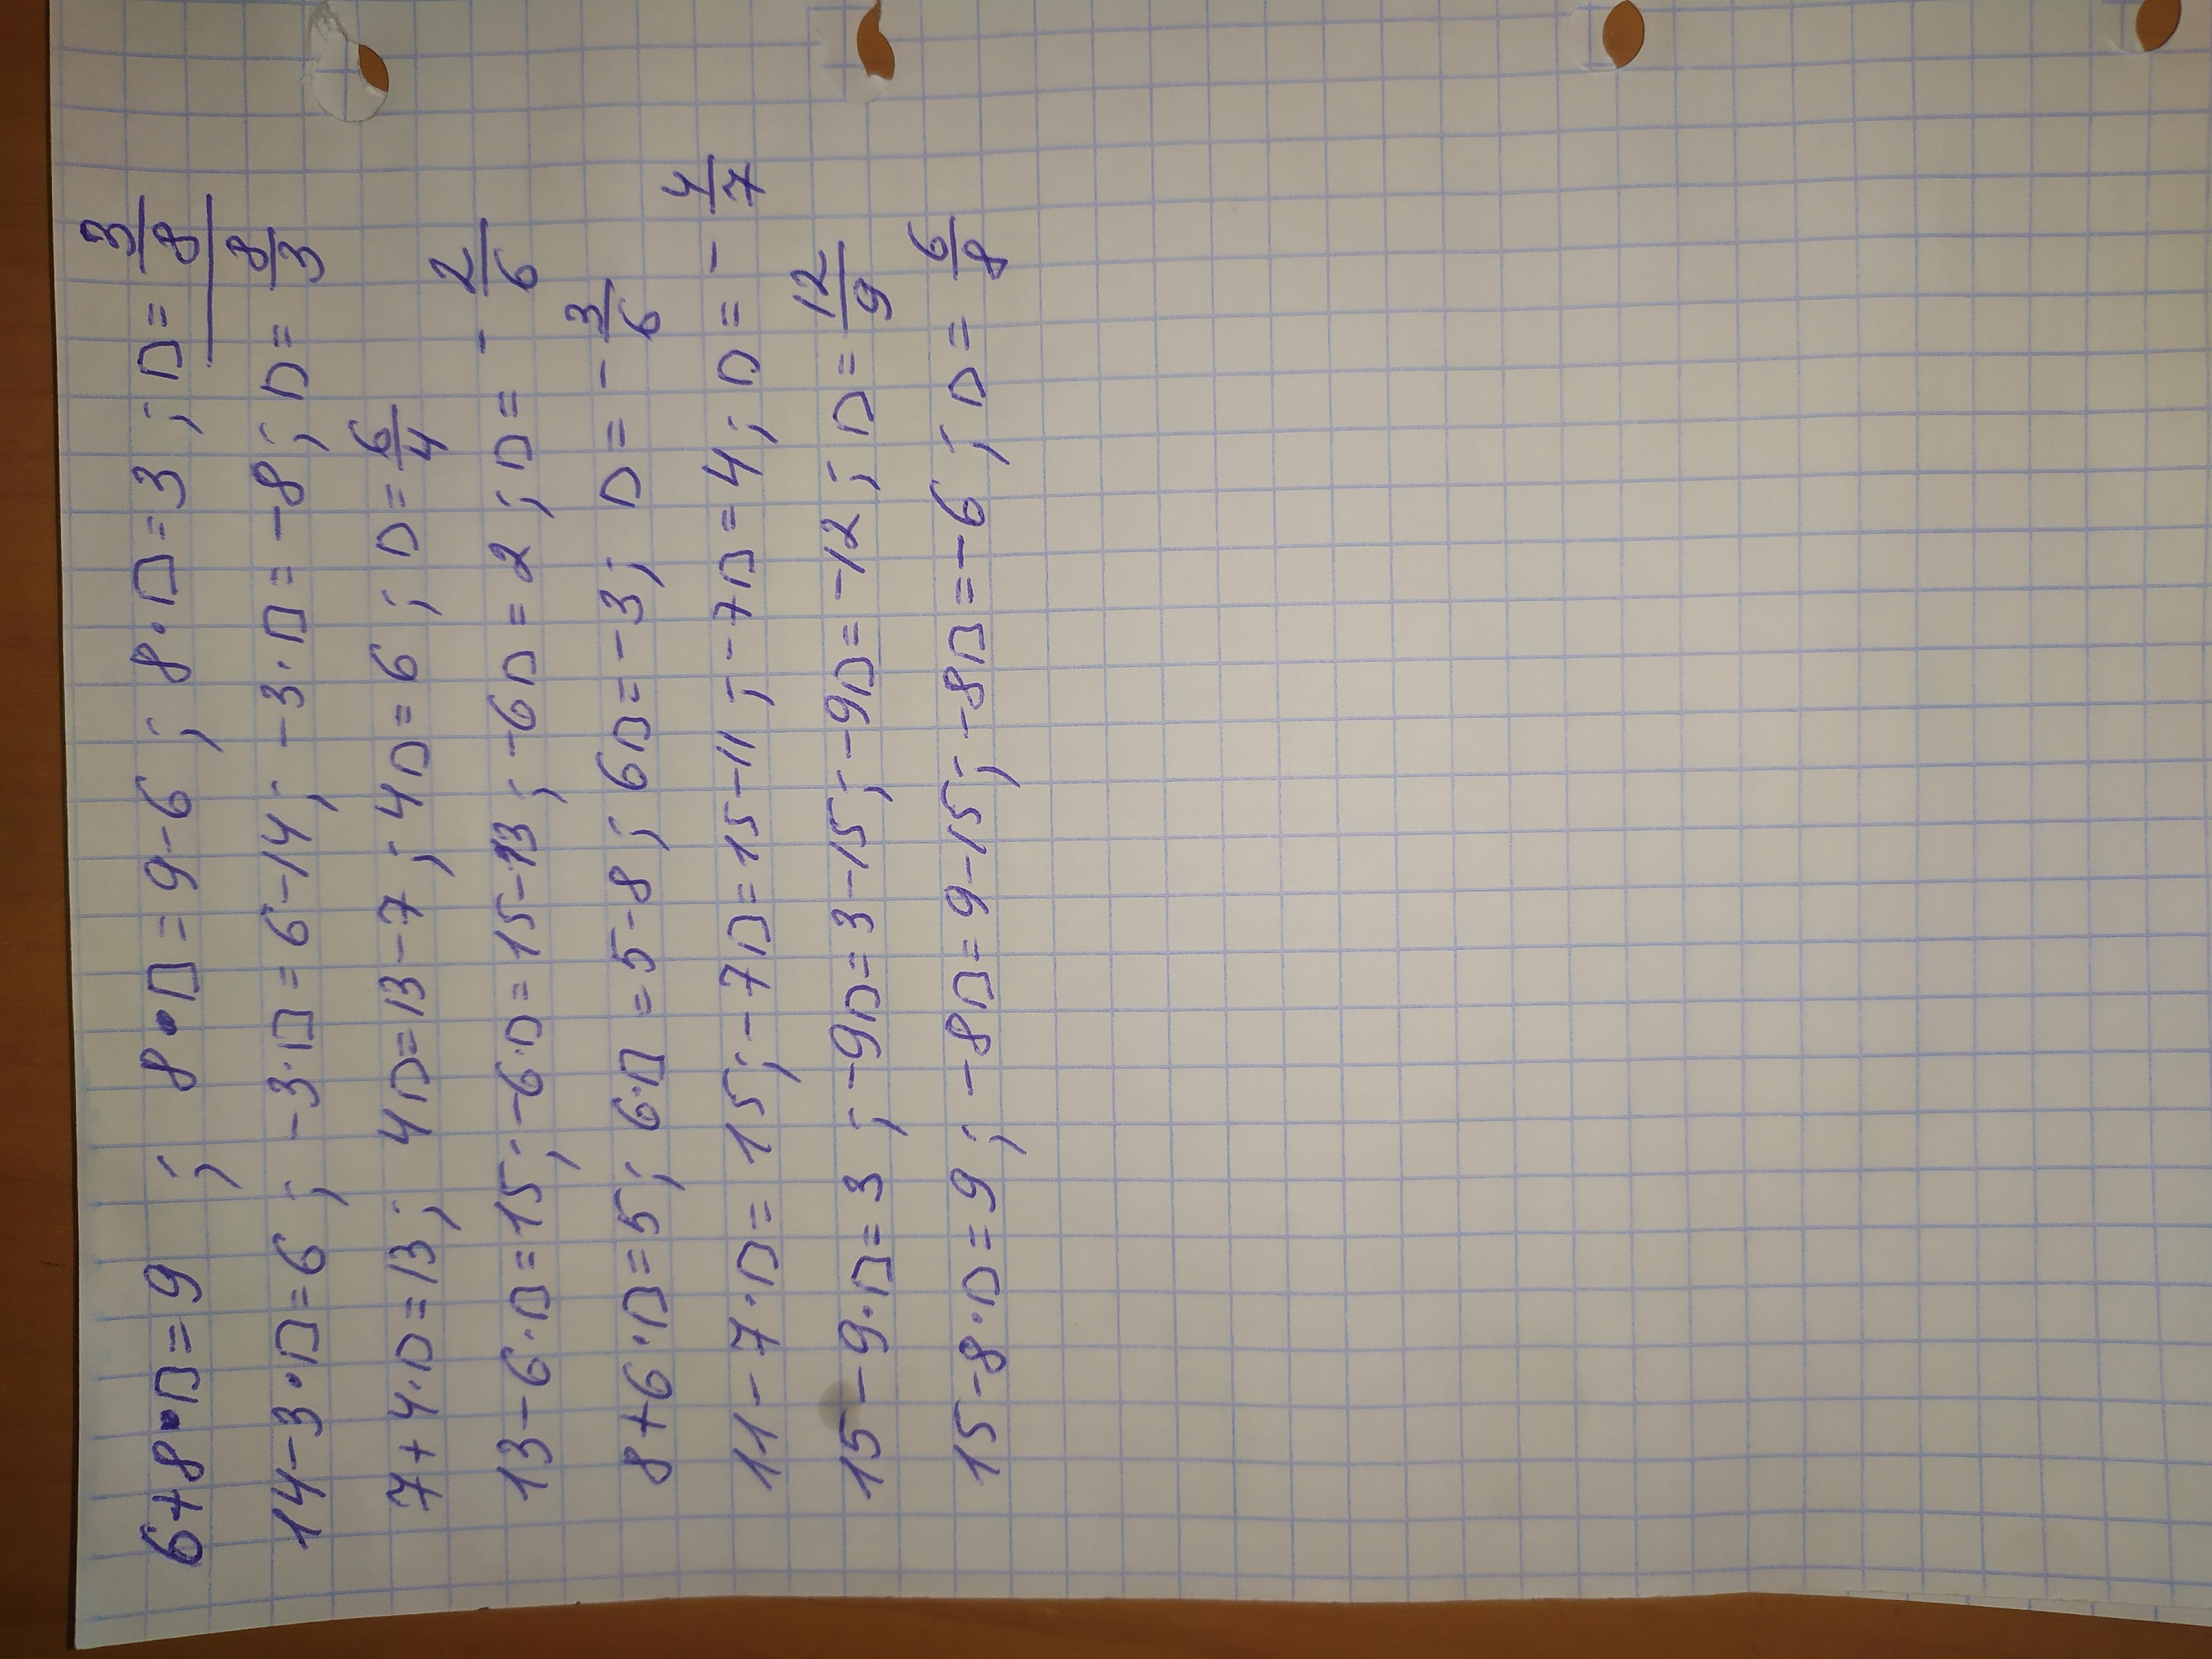 6+8·□=9 ; 8·□=9-6 ; 8·□=3 ; □=3/8
14-3·□=6 ; -3·□=6-14 ; -3·□=-8 ; □=8/3
7+4·□=13 ; 4□=13-7 ; 4□=6 ; □=6/4
13-6·□=15 ; -6·□=15-13 ; -6□=2 ; □= -2/6
8+6·□=5 ; 6·□=5-8 ; 6□=-3 ; □=-3/6
11-7·□=15 ; -7□=15-11 ; -7□=4 ; □=-4/7
15-9·□=3 ; -9□=3-15 ; -9□=-12 ; □=12/9
15-8·□=9 ; -8□=9-15 ; -8□=-6 ; □=6/8